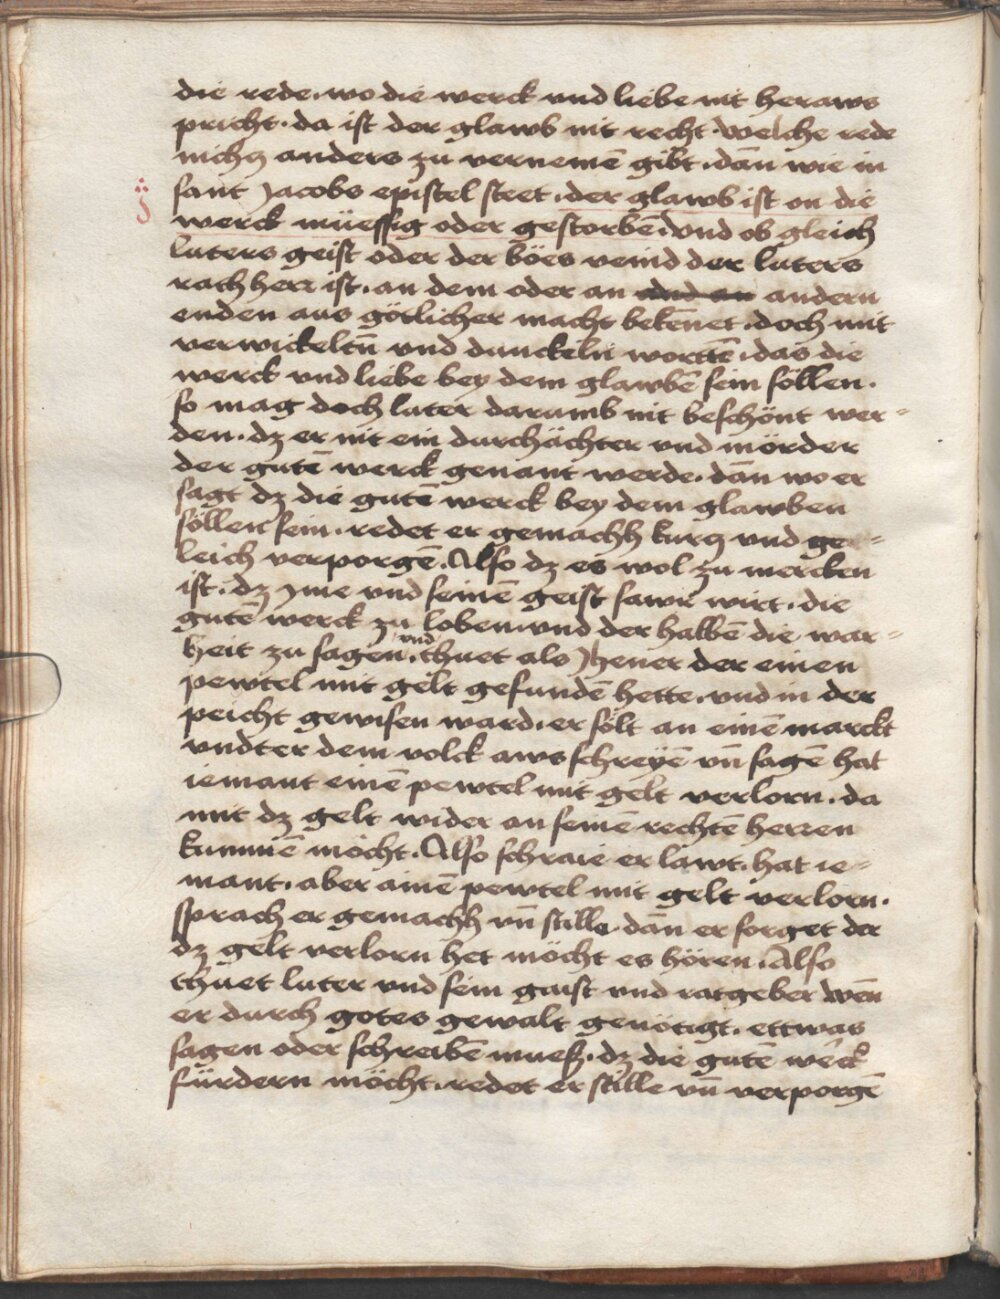 die rede. wo die werck vnd liebe nit heraws
pricht. da ist der glawb nit recht. Welche rede
nichꝫ anders zu vernemē gibt. dān wie in
sant Jacobs epistel steet. der glawb ist on die
werck müessig oder gestorbē. vnd ob gleich
luters geist oder der böes veind der luters
rach herr ist. an dem oder an andern
enden aus götlicher macht bekēnet. doch mit
verwickeltn̄ vnd dunckeln wortē. das die
werck vnd liebe bey dem glawbē sein söllen.
so mag doch luter darumb nit beschönt wer-
den. dz er nit ein durchächter vnd mörder
der gutē werck genant werde. dān wo er
sagt dz die gutē werck bey dem glawben
söllen sein. redet er gemachh kurꝫ vnd ge-
leich verporgē. Also dz es wol zu mercken
ist. dz yme vnd seinē geist sawr wirt. die
gutē werck zu loben. vnd der halbē die war-
heit zu sagen. vnd thuet als Jhener der einen
pewtel mit gelt gefundē hette. vnd in der
peicht gewisen ward. er sölt an einē marckt
vndter dem volck aws schreyē vn̄ sagē hat
iemant einē pewtel mit gelt verlorn. da
mit dz gelt wider an seinē rechtē herren
kummē möcht. Also schraie er lawt. hat ie-
mant. aber ainē pewtel mit gelt verlorn.
sprach er gemachh vn̄ stille. dān er sorget der
dz gelt verlorn het möcht es hören. Also
thuet luter vnd sein gaist vnd ratgeber wēn
er durch gotes gewalt genötigt. ettwas
sagen oder schreibē mueß. dz die gutē werck
fürdern möcht. redet er stille vn̄ verporgē